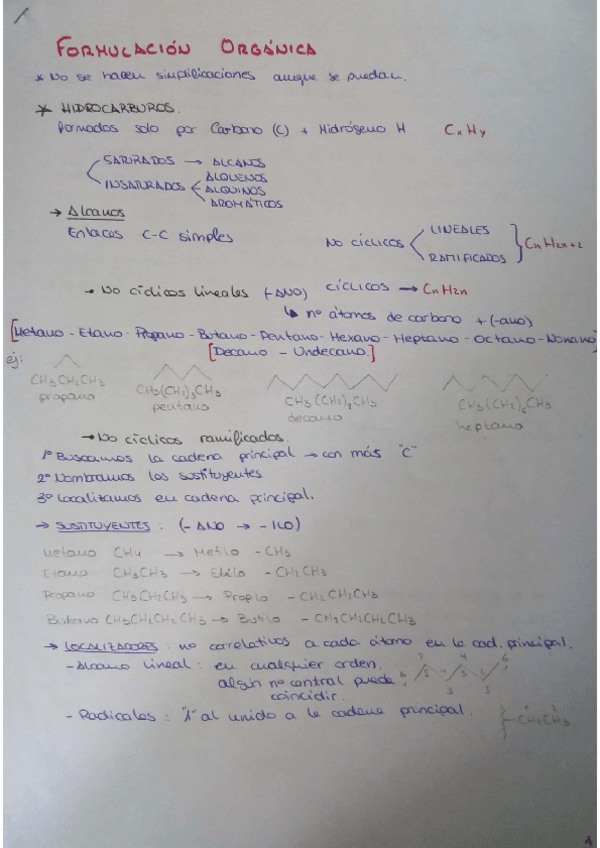 FORMULACIÓN ORGÁNICA
* No se hacen simplificaciones aunque se puedan.
* HIDROCARBUROS.
Formados solo por Carbono (C) + Hidrógeno H CxHy
SATURADOS → ALCANOS
INSATURADOS
ALQUENOS
ALQUINOS
AROMÁTICOS
→ Alcanos
Enlaces C-C simples
No cíclicos
LINEALES
RAMIFICADOS
CnH2n+2
CÍCLICOS → CnH2n
→ No cíclicos lineales (-ANO)
↳ nº átomos de carbono + (-ano)
[Metano - Etano - Propano - Butano - Pentano - Hexano - Heptano - Octano - Nonano]
[Decano - Undecano.]
ej:
CH3CH2CH3
propano
CH3(CH2)3CH3
pentano
CH3(CH2)9CH3
decano
CH3(CH2)6CH3
heptano
→ No cíclicos ramificados.
1º Buscamos la cadena principal → con más "C"
2º Nombramos los sustituyentes
3º Localizamos en cadena principal.
→ SUSTITUYENTES : (-ANO → -ILO)
Metano CH4 → Metilo -CH3
Etano CH3CH3 → Etilo -CH2CH3
Propano CH3CH2CH3 → Propilo -CH2CH2CH3
Butano CH3CH2CH2CH3 → Butilo -CH2CH2CH2CH3
→ LOCALIZADORES : no correlativos a cada átomo en la cad. principal.
- Alcano lineal : en cualquier orden.
algún no central puede
coincidir.
- Radicales : "1" al unido a la cadena principal.
CH2CH3